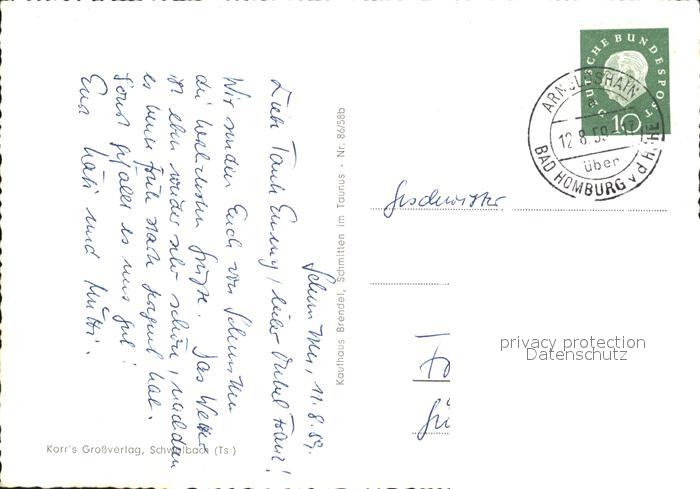 Schmitten, 11.8.59.
Liebe Tante Emmy, lieber Onkel Franz!
Wir senden Euch von Schmitten
die herzlichsten Grüße. Das Wetter
ist eben wieder sehr schön, nachdem
es heute früh stark geregnet hat.
Sonst gefällt es uns gut!
Eure Käti und Mutti.
Korr's Großverlag, Schwalbach (Ts.)
Kaufhaus Brendel, Schmitten im Taunus - Nr. 86/58b
DEUTSCHE BUNDESPOST
10
ARNOLDSHAIN
12.8.59-17
über
BAD HOMBURG v d HÖHE
Geschwister
privacy protection
Datenschutz